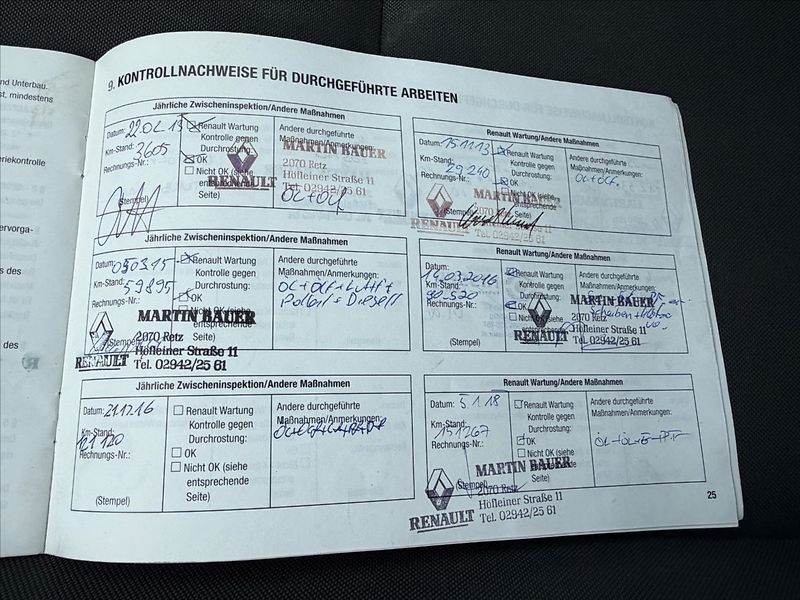 nd Unterbau.
st, mindestens
eriekontrolle
ervorga-
s des
des
9. KONTROLLNACHWEISE FÜR DURCHGEFÜHRTE ARBEITEN
Jährliche Zwischeninspektion/Andere Maßnahmen
Datum: 22.01.13
Km-Stand: 3605
Rechnungs-Nr.:
(Stempel)
Renault Wartung
Kontrolle gegen
Durchrostung:
OK
Nicht OK (siehe
entsprechende
Seite)
Andere durchgeführte
Maßnahmen/Anmerkungen:
ÖL+ÖLF
RENAULT
MARTIN BAUER
2070 Retz
Höfleiner Straße 11
Tel. 02942/25 61
Renault Wartung/Andere Maßnahmen
Datum: 15.11.13
Km-Stand: 29.210
Rechnungs-Nr.:
(Stempel)
Renault Wartung
Kontrolle gegen
Durchrostung:
OK
Nicht OK (siehe
entsprechende
Seite)
Andere durchgeführte
Maßnahmen/Anmerkungen:
ÖL+ÖLF.
RENAULT
MARTIN BAUER
2070 Retz
Höfleiner Straße 11
Tel. 02942/25 61
Jährliche Zwischeninspektion/Andere Maßnahmen
Datum: 05.03.15
Km-Stand: 59895
Rechnungs-Nr.:
Renault Wartung
Kontrolle gegen
Durchrostung:
OK
Nicht OK (siehe
entsprechende
Seite)
Andere durchgeführte
Maßnahmen/Anmerkungen:
ÖL+ÖLF+Luftf+
Pollenf+Dieself
RENAULT
MARTIN BAUER
2070 Retz
Höfleiner Straße 11
Tel. 02942/25 61
Renault Wartung/Andere Maßnahmen
Datum: 14.03.2016
Km-Stand: 90.520
Rechnungs-Nr.:
(Stempel)
Renault Wartung
Kontrolle gegen
Durchrostung:
OK
Nicht OK (siehe
entsprechende
Seite)
Andere durchgeführte
Maßnahmen/Anmerkungen:
RENAULT
MARTIN BAUER
2070 Retz
Höfleiner Straße 11
Tel. 02942/25 61
Jährliche Zwischeninspektion/Andere Maßnahmen
Datum: 21.12.16
Km-Stand: 121120
Rechnungs-Nr.:
(Stempel)
Renault Wartung
Kontrolle gegen
Durchrostung:
OK
Nicht OK (siehe
entsprechende
Seite)
Andere durchgeführte
Maßnahmen/Anmerkungen:
Renault Wartung/Andere Maßnahmen
Datum: 5.1.18
Km-Stand: 151267
Rechnungs-Nr.:
(Stempel)
Renault Wartung
Kontrolle gegen
Durchrostung:
OK
Nicht OK (siehe
entsprechende
Seite)
Andere durchgeführte
Maßnahmen/Anmerkungen:
RENAULT
MARTIN BAUER
2070 Retz
Höfleiner Straße 11
Tel. 02942/25 61
25